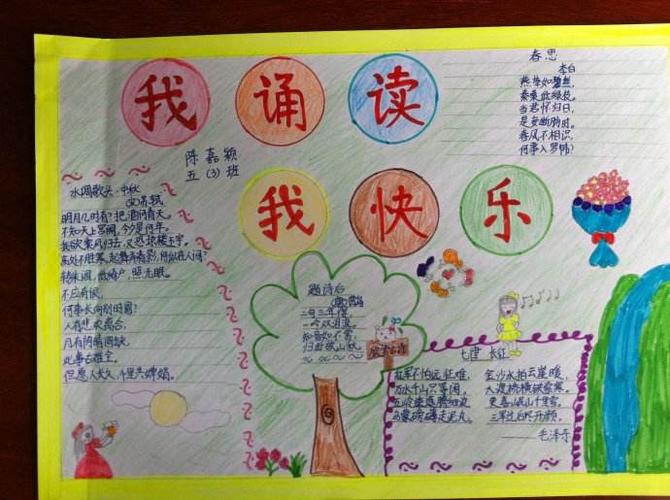 我诵读
我快乐
陈嘉颖
五(3)班
春思
李白
燕草如碧丝，
秦桑低绿枝。
当君怀归日，
是妾断肠时。
春风不相识，
何事入罗帏？
水调歌头·中秋
苏轼
明月几时有？把酒问青天。
不知天上宫阙，今夕是何年。
我欲乘风归去，又恐琼楼玉宇，
高处不胜寒，起舞弄清影，何似在人间？
转朱阁，低绮户，照无眠。
不应有恨，
何事长向别时圆？
人有悲欢离合，
月有阴晴圆缺，
此事古难全。
但愿人长久，千里共婵娟。
题诗后
二句三年得，
一吟双泪流。
知音如不赏，
归卧故山秋。
七律 长征
红军不怕远征难，
万水千山只等闲。
五岭逶迤腾细浪，
乌蒙磅礴走泥丸。
金沙水拍云崖暖，
大渡桥横铁索寒。
更喜岷山千里雪，
三军过后尽开颜。
——毛泽东